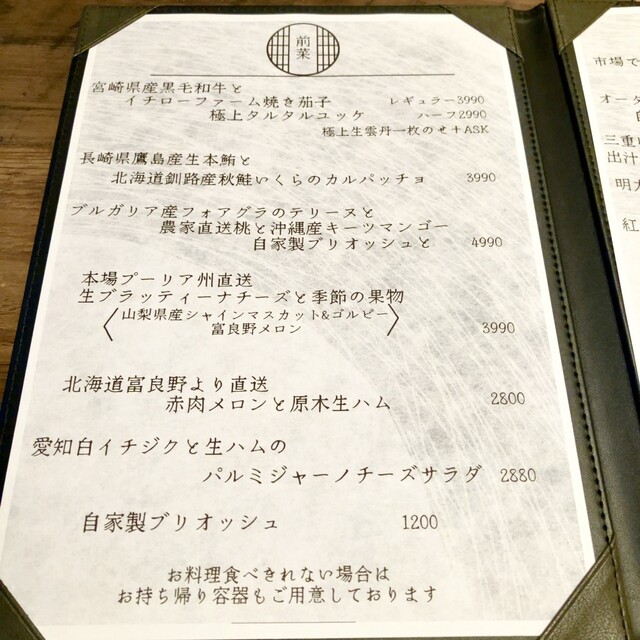 前菜
宮崎県産黒毛和牛と
イチローファーム焼き茄子 レギュラー3990
極上タルタルユッケ ハーフ2990
極上生雲丹一枚のせ+ASK
長崎県鷹島産生本鮪と
北海道釧路産秋鮭いくらのカルパッチョ 3990
ブルガリア産フォアグラのテリーヌと
農家直送桃と沖縄産キーツマンゴー
自家製ブリオッシュと 4990
本場プーリア州直送
生ブラッティーナチーズと季節の果物
〈山梨県産シャインマスカット&ゴルビー
富良野メロン〉 3990
北海道富良野より直送
赤肉メロンと原木生ハム 2800
愛知白イチジクと生ハムの
パルミジャーノチーズサラダ 2880
自家製ブリオッシュ 1200
お料理食べきれない場合は
お持ち帰り容器もご用意しております
市場で
オータ
三重
出汁
明
紅